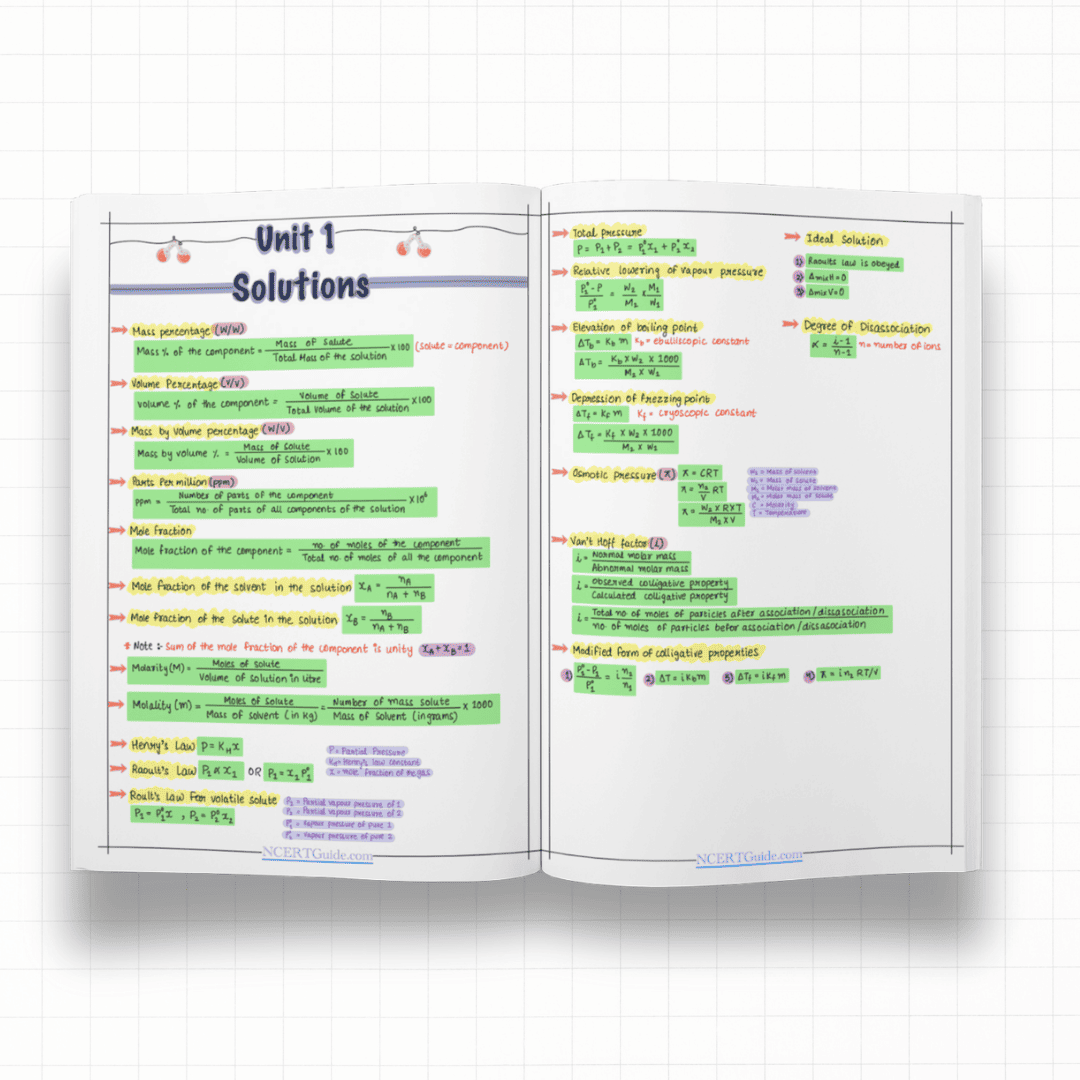 Unit 1
Solutions
Mass percentage (W/W)
Mass % of the component = Mass of Solute / Total Mass of the solution × 100 (solute = component)
Volume Percentage (V/V)
volume % of the component = Volume of Solute / Total Volume of the solution × 100
Mass by Volume percentage (W/V)
Mass by volume % = Mass of Solute / Volume of Solution × 100
Parts Per million (ppm)
ppm = Number of parts of the component / Total no. of parts of all components of the solution × 10⁶
Mole fraction
Mole fraction of the component = no. of moles of the component / Total no. of moles of all the component
Mole fraction of the solvent in the solution x_A = n_A / n_A + n_B
Mole fraction of the solute in the solution x_B = n_B / n_A + n_B
* Note :- Sum of the mole fraction of the component is unity x_A + x_B = 1
Molarity (M) = Moles of solute / Volume of solution in litre
Molality (m) = Moles of solute / Mass of solvent (in kg) = Number of mass solute / Mass of solvent (in grams) × 1000
Henry's Law P = K_H x
P = Partial Pressure
K_H = Henry's law constant
x = mole fraction of the gas
Raoult's Law P₁ ∝ x₁ OR P₁ = x₁ P₁°
Roult's law for volatile solute
P₁ = P₁°x , P₂ = P₂°x₂
P₁ = Partial vapour pressure of 1
P₂ = Partial vapour pressure of 2
P₁° = vapour pressure of pure 1
P₂° = vapour pressure of pure 2
NCERTGuide.com
Total pressure
P = P₁ + P₂ = P₁°x₁ + P₂°x₂
Relative lowering of vapour pressure
P₁° - P / P₁° = W₂ / M₂ × M₁ / W₁
Elevation of boiling point
ΔT_b = K_b m K_b = ebulliscopic constant
ΔT_b = K_b × W₂ × 1000 / M₂ × W₁
Depression of frezzing point
ΔT_f = K_f m K_f = cryoscopic constant
ΔT_f = K_f × W₂ × 1000 / M₂ × W₁
Osmotic pressure (π) π = CRT
π = n₂ / V RT
π = W₂ × R × T / M₂ × V
W₁ = Mass of solvent
W₂ = Mass of solute
M₁ = Molar mass of solvent
M₂ = Molar mass of solute
C = Molarity
T = Temperature
Van't Hoff factor (i)
i = Normal molar mass / Abnormal molar mass
i = Observed colligative property / Calculated colligative property
i = Total no. of moles of particles after association / dissasociation / no. of moles of particles befor association / dissasociation
Modified form of colligative properties
1) P₁° - P₁ / P₁° = i n₂ / n₁ 2) ΔT = i K_b m 3) ΔT_f = i K_f m 4) π = i n₂ RT/V
Ideal Solution
1) Raoults law is obeyed
2) Δmix H = 0
3) Δmix V = 0
Degree of Disassociation
α = i - 1 / n - 1 n = number of ions
NCERTGuide.com